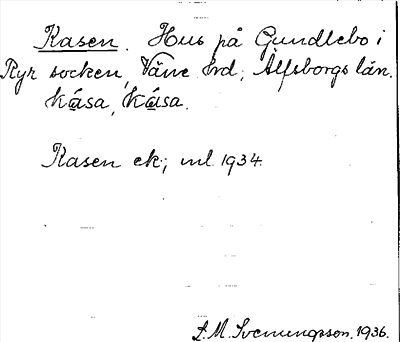 Kasen. Hus på Gundlebo i
Ryr socken, Väne hrd; Älfsborgs län.
kása, kása.
Kasen ek; ml. 1934.
S. M. Svenungsson. 1936.